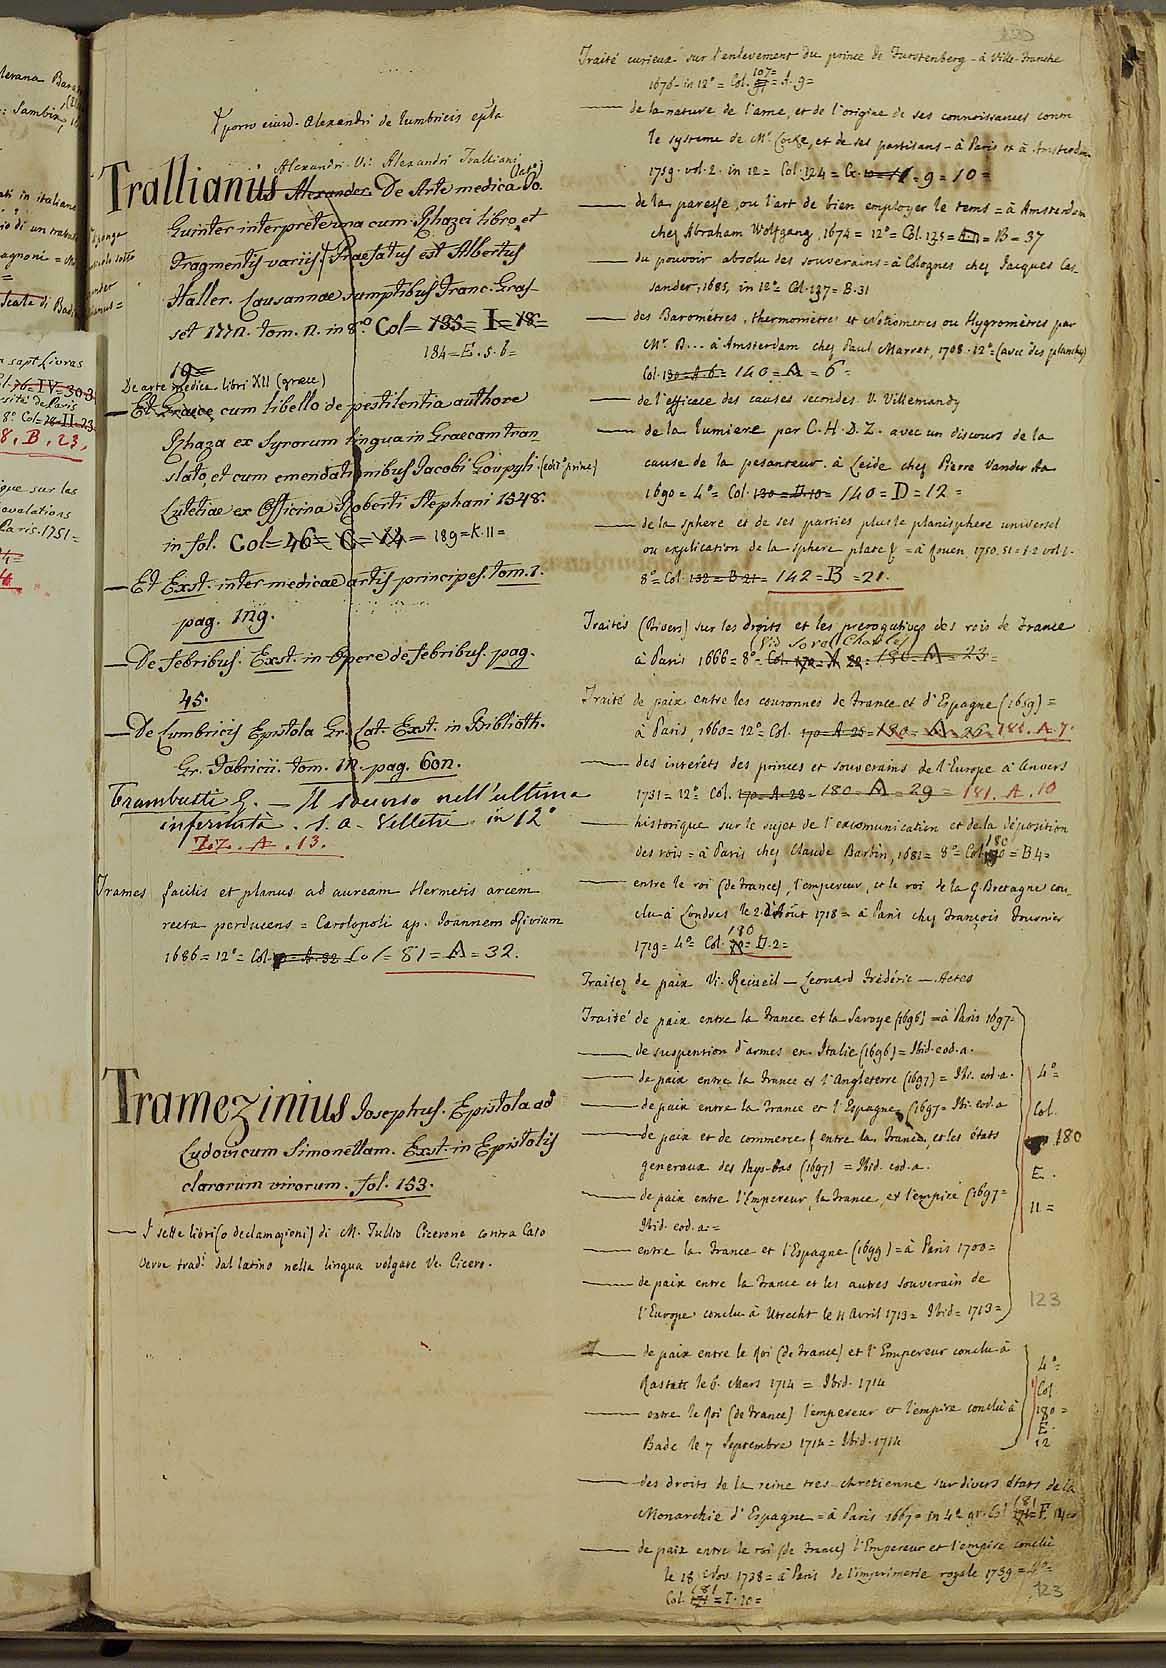 Ɣ porro eiusd. Alexandri de lumbricis epla
Alexandri Vi: Alexandri Tralliani
Trallianus Alexander De Arte medica Jo.
Guinter interprete una cum Rhazei libro, et
Fragmentis variis Praefatus est Albertus
Haller. Lausannae sumptibus Franc. Gras-
set 1772. tom. 2. in 8.º Col= 135= I= 18=
184=E.5.6=
19=
De arte medica libri XII (graece)
— Et Graece cum libello de pestilentia authore
Rhaza ex Syrorum lingua in Graecam tran
slato, et cum emendationibus Jacobi Goupyli. (edit.º princ)
Lutetiae ex Officina Roberti Stephani 1548.
in fol. Col= 46= C= 14= 189=K.II=
— Et Exst. inter medicae artis principes. tom. 1.
pag. 119.
— De febribus. Exst. in Opere de febribus. pag.
45.
— De Lumbricis Epistola Gr. Lat. Exst. in Biblioth.
Gr. Fabricii. tom. 12. pag. 602.
Trambusti G. — Il socorso nell'ultima
infermità. s. a. Velletri in 12º
ZZ. A. 13.
Trames facilis et planus ad auream Hermetis arcem
recta perducens = Carolopoli ap. Joannem Rivium
1686= 12º= Col. A= 32 Col= 81= A= 32.
Tramezinius Josephus. Epistola ad
Ludovicum Simonettam. Exst. in Epistolis
clarorum virorum. fol. 153.
— I sette libri (o declamazioni) di M. Tullio Cicerone contra Caio
Verre trad.i dal latino nella lingua volgare Ve. Cicero.
Traité curieux sur l'enlevement du prince de Furstenberg - à Ville-Franche
1676- in 12º = Col. 107= A. 9=
— de la nature de l'ame, et de l'origine de ses connoissances contre
le systeme de Mr. Locke, et de ses partisans - à Paris et à Amsterdam
1759. vol. 2. in 12= Col. 124= C. 9= 10=
— de la paresse, ou l'art de bien employer le tems = à Amsterdam
chez Abraham Wolfgang, 1674= 12º= Col. 135= B= 37
— du pouvoir absolu des souverains = à Cologne chez Jacques Cas
sander, 1685, in 12º= Col. 137= B. 31
— des Baromètres, thermomètres et Notiometres ou Hygromètres par
Mr. D... à Amsterdam chez Paul Marret, 1708. 12º= (avec des planches)
Col. 130= A. 6= 140= A= 6=
— de l'efficace des causes secondes V. Villemandy
— de la lumiere par C. H. D. Z. avec un discours de la
cause de la pesanteur. à Leide chez Pierre Vander Aa
1690= 4º= Col. 130= D. 10= 140= D= 12=
— de la sphere et de ses parties plus le planisphere universel
ou explication de la sphere plate = à Rouen, 1750. 51= t. 2 vol 1.
8º= Col. 132= B 21= 142= B= 21.
Traités (Divers) sur les droits et les prerogatives des rois de France
(Vid Sorel Charles)
à Paris 1666= 8º= Col. 170= A 22= 180= A= 23=
Traité de paix entre les couronnes de France et d'Espagne (1659)=
à Paris, 1660= 12º= Col. 170= A 25= 180= A= 26= 181. A. 7.
— des interêts des princes et souverains de l'Europe à Anvers
1731= 12º= Col. 170= A. 28= 180= A= 29= 181. A. 10
— historique sur le sujet de l'excomunication et de la déposition
des rois = à Paris chez Claude Barbin, 1681= 8º= Col. 180= B 4=
— entre le roi (de France), l'empereur, et le roi de la G. Bretagne con-
clu à Londres le 2 d'Août 1718= à Paris chez François Fournier
1719= 4º= Col. 180= D. 2=
Traitez de paix Vi. Recueil — Leonard Frédéric — Actes
Traité de paix entre la France et la Savoye (1696) = à Paris 1697.
— de suspension d'armes en Italie (1696) = Ibid. eod. a.
— de paix entre la France et l'Angleterre (1697) = Ibi. eod. a.
— de paix entre la France et l'Espagne (1697= Ibi. eod. a
— de paix et de commerce, entre la France, et les états
generaux des Pays-bas (1697) = Ibid. eod. a.
— de paix entre l'Empereur, la France, et l'empire (1697=
Ibid. eod. a.=
— entre la France et l'Espagne (1699) = à Paris 1700=
— de paix entre la France et les autres souverain de
l'Europe conclu à Utrecht le 11 Avril 1713= Ibid= 1713=
4º=
Col.
180
E.
11=
123
— de paix entre le Roi (de France) et l'Empereur conclu à
Rastatt le 6. Mars 1714= Ibid. 1714
— entre le Roi (de France) l'empereur et l'empire conclu à
Bade le 7 Septembre 1714= Ibid. 1714
4º=
Col
180=
E.
12
— des droits de la reine tres-chretienne sur divers états de la
Monarchie d'Espagne = à Paris 1667= in 4º gr. Col 181= F.
— de paix entre le roi (de France) l'Empereur et l'empire conclu
le 18 Nov. 1738= à Paris de l'imprimerie royale 1739= 4º=
Col. 181= I. 10=
123